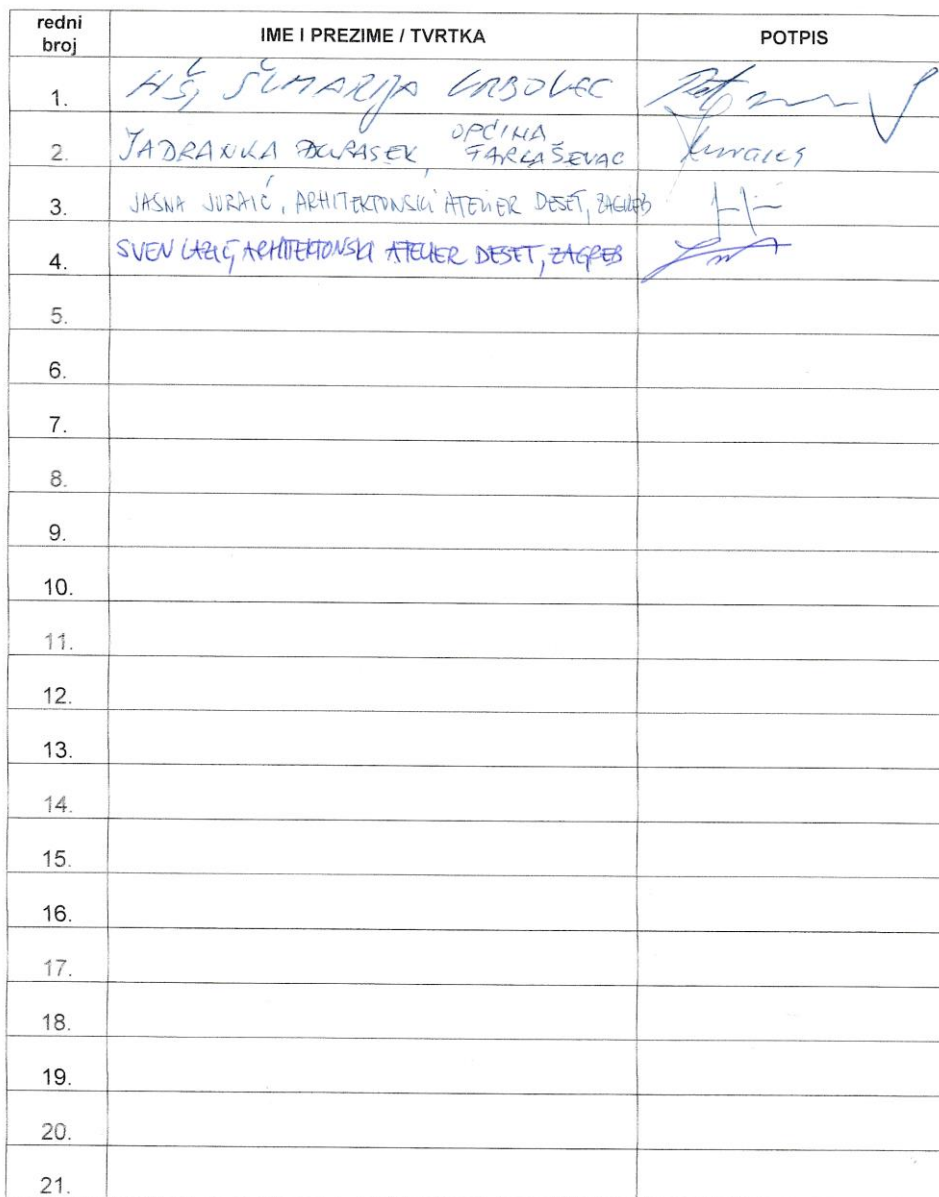 redni broj IME I PREZIME / TVRTKA POTPIS
1. HŠ, ŠUMARIJA VRBOVEC
2. JADRANKA ĐURASEK, OPĆINA FARKAŠEVAC
3. JASNA JURAIĆ, ARHITEKTONSKI ATELIER DESET, ZAGREB
4. SVEN LAZIĆ, ARHITEKTONSKI ATELIER DESET, ZAGREB
5.
6.
7.
8.
9.
10.
11.
12.
13.
14.
15.
16.
17.
18.
19.
20.
21.